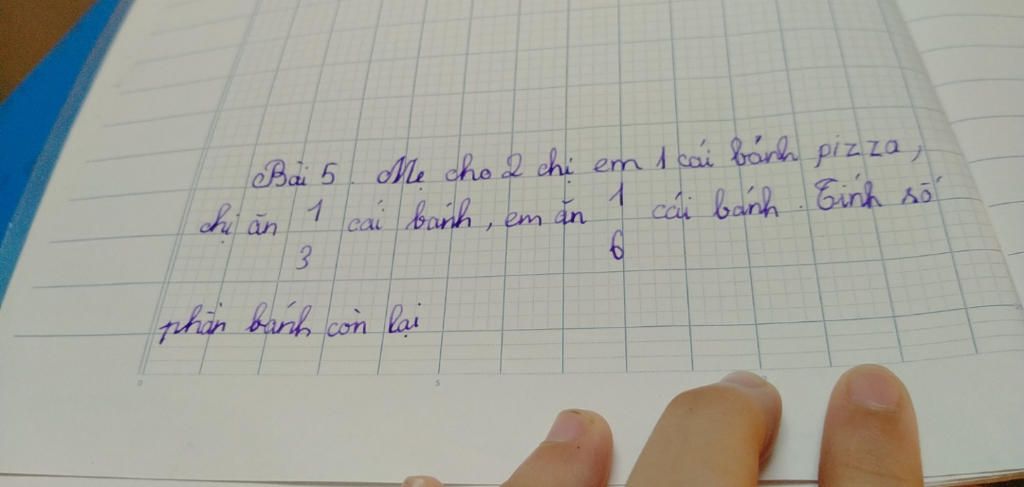 Bài 5. Mẹ cho 2 chị em 1 cái bánh pizza,
chị ăn 1/3 cái bánh, em ăn 1/6 cái bánh. Tính số
phần bánh còn lại
0 5